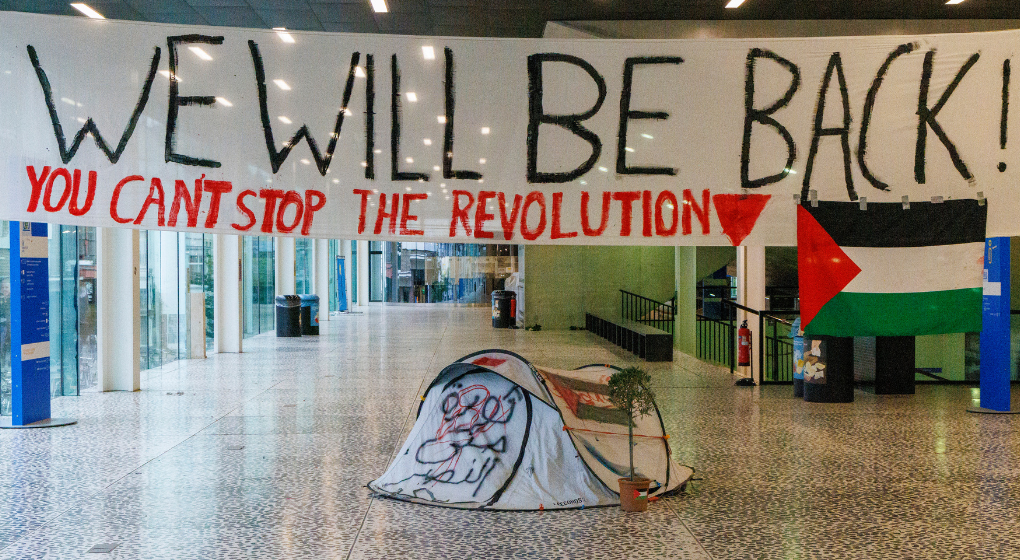 WE WILL BE BACK!
YOU CAN'T STOP THE REVOLUTION